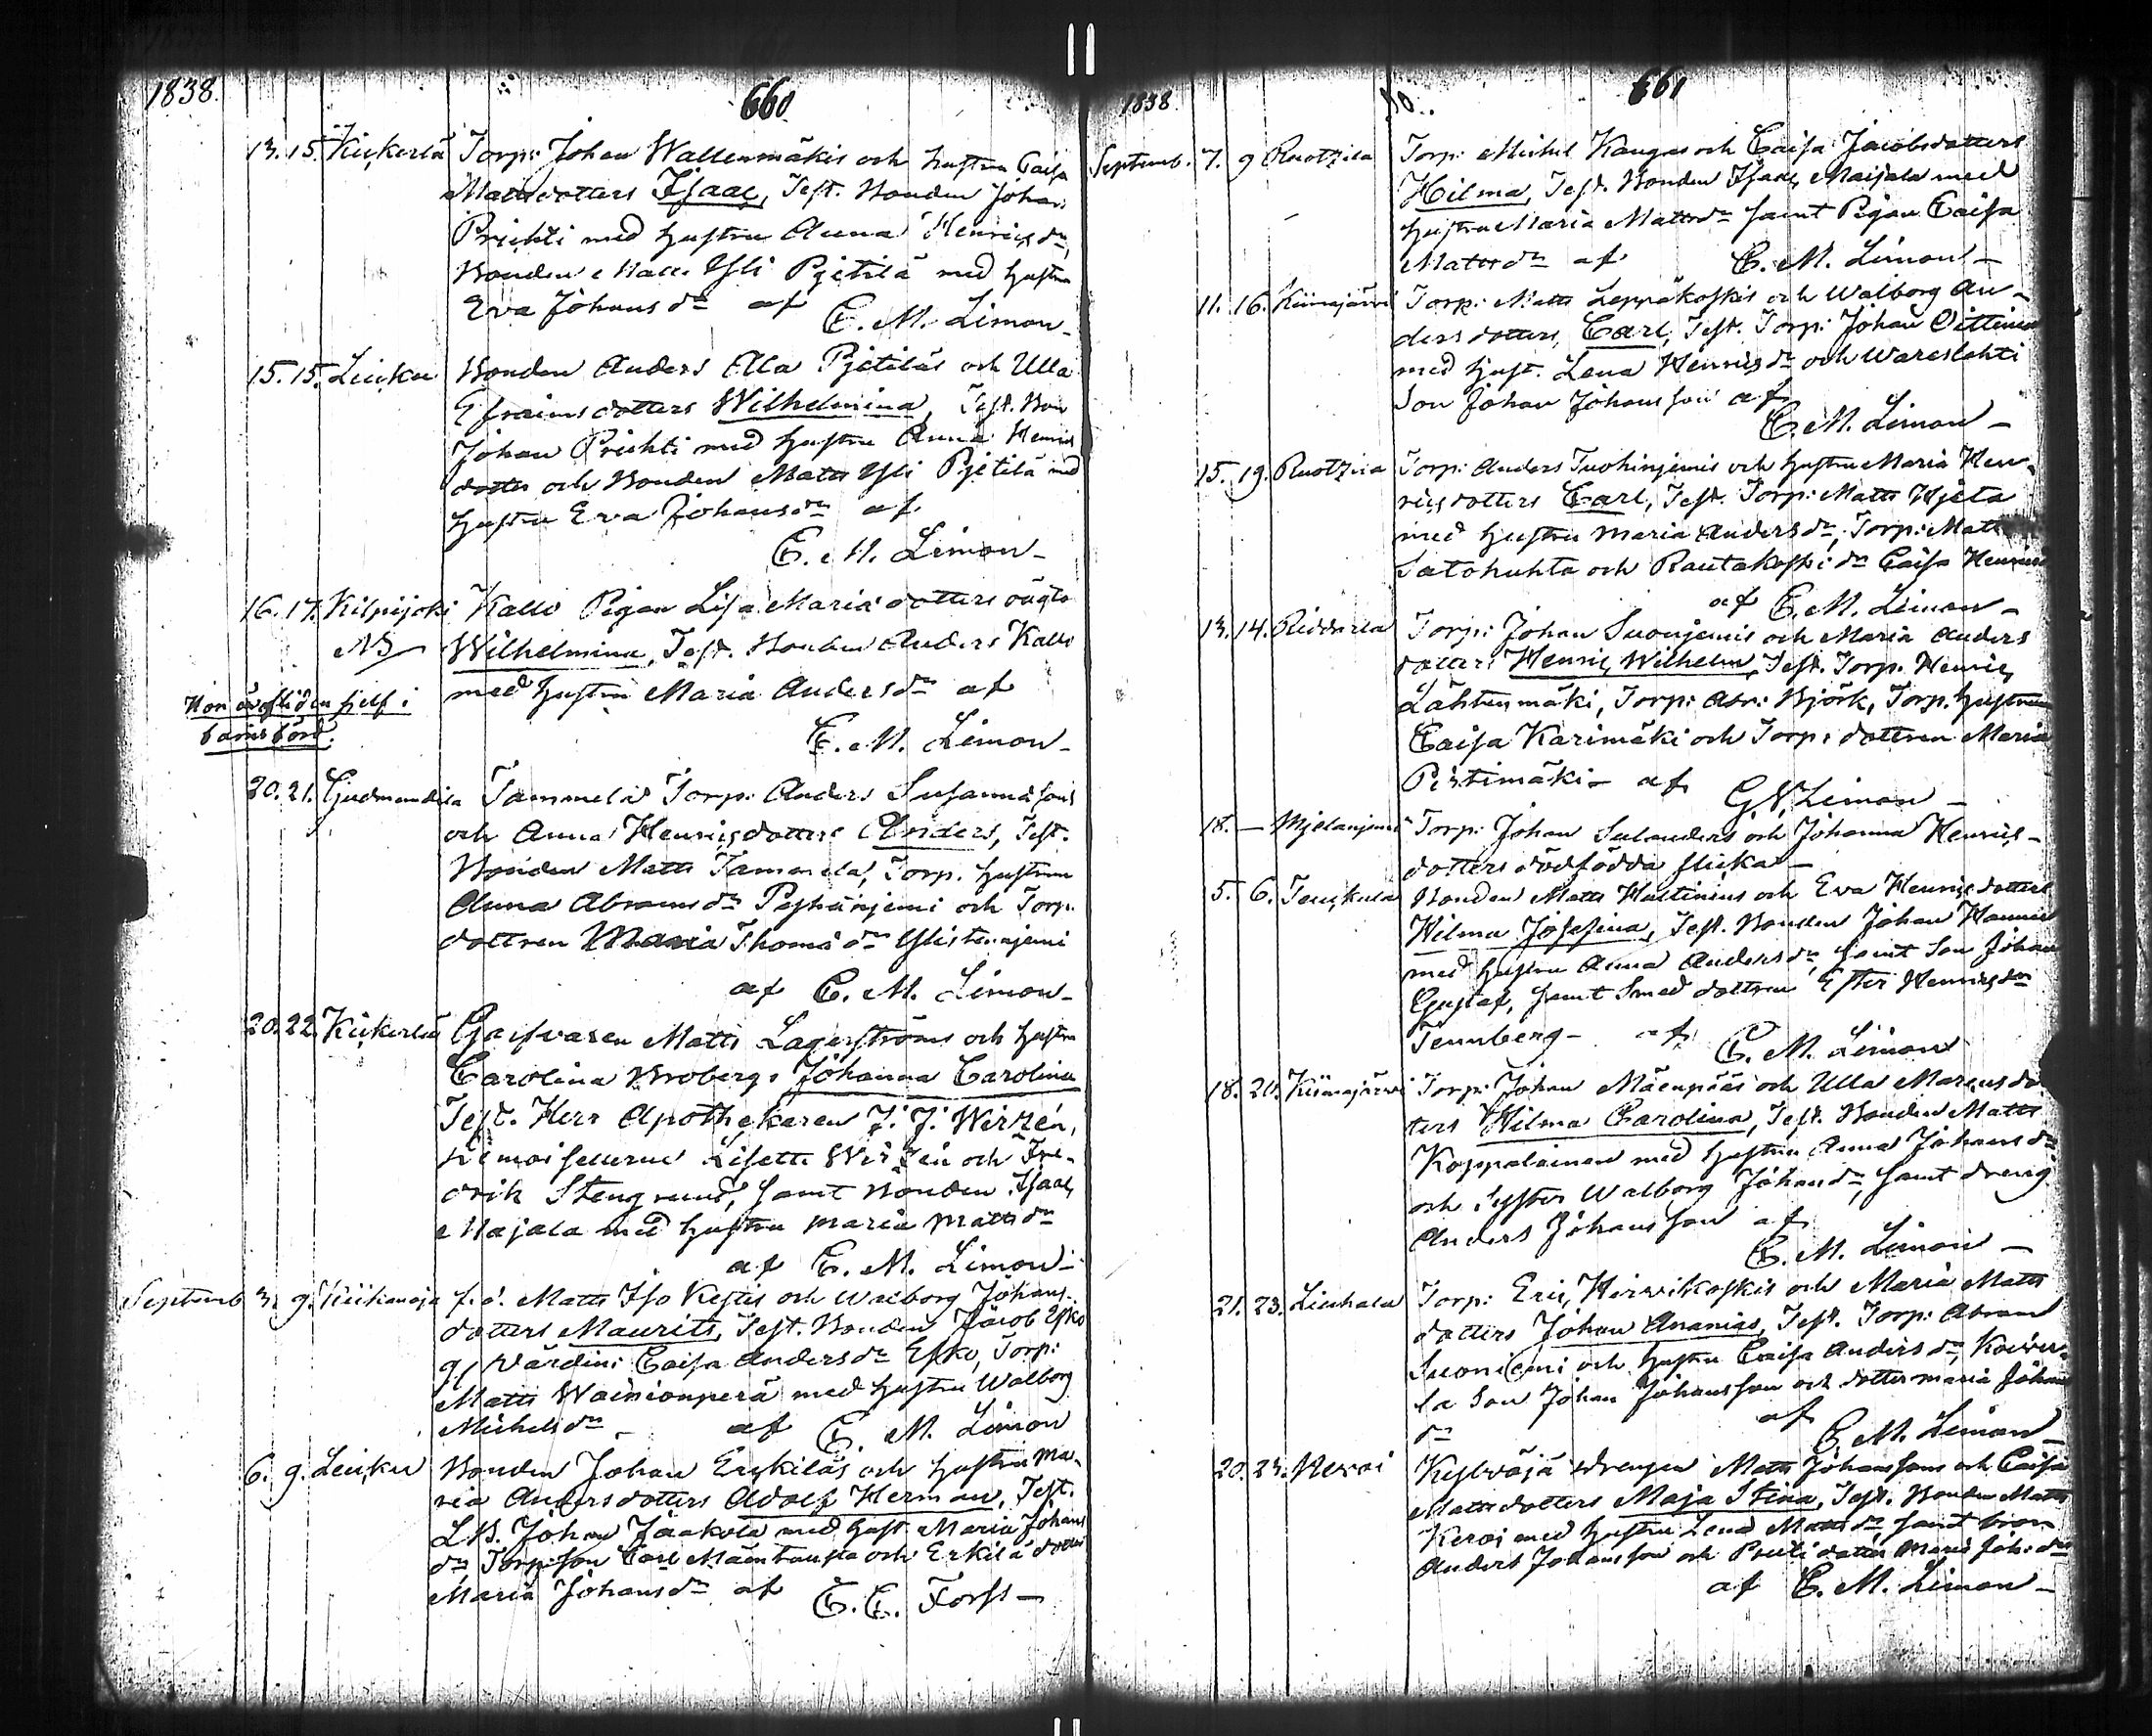 1838.
660
13. 15. Kiikerlä Torp: Johan Wallenmäkis och hustru Caisa
Mattsdotters Isaac, Test. Bonden Johan
Prihti med hustru Anna Henricsdr,
Bonden Matts Yli Pjetilä med hustru
Eva Johansdr af
E. M. Limon
15. 15. Leicku Bonden Anders Alla Pjetiläs och Ulla
Efraimsdotters Wilhelmina, Test. Bon
Johan Prihti med hustru Anna Henrics
dotter och Bonden Matts Yli Pjetilä med
hustru Eva Johansdr af
E. M. Limon
16. 17. Kilpijoki Kallo Pigan Lisa Mariadotters oägta
NB Wilhelmina, Test. Bonden Anders Kallo
med hustru Maria Andersdr af
Hon är afliden sjelf i
barnsbörd.
E. M. Limon
20. 21. Gudmandila Tammela Torp: Anders Susannasons
och Anna Henricsdotters Anders, Test.
Bonden Matts Tammela, Torp. hustrun
Anna Abramsdr Peskänjemi och Torp.
dottren Maria Thomædr Ylistenjemi
af E. M. Limon
20. 22. Kiikerlä Garfvaren Matts Lagerströms och hustru
Carolina Brobergs Johanna Carolina
Test. Herr Apothekaren J. J. Wirzén,
Demoisellerne Lisette Wirzén och Fre-
drik Stengrund, samt Bonden Isaac
Majala med hustru Maria Mattsdr
af E. M. Limon
Septemb. 3. 9. Kiikanoja f. d. Matts Iso Kestis och Walborg Johans
dotters Maurits, Test. Bonden Jacob Esko
g, Värdin: Caisa Andersdr Esko, Torp:
Matts Wainionperä med hustru Walborg
Michelsdr af E. M. Limon
6. 9. Leicku Bonden Johan Erckiläs och hustru Ma-
ria Andersdotters Adolf Herman, Test.
LB. Johan Jaakola med hust. Maria Johans
dr, Torp:son Carl Mäentausta och Erkilä dotter
Maria Johansdr af E. E. Forss
1838.
661
Septemb. 7. 9 Ruotzila Torp: Michel Kangas och Caisa Jacobsdotters
Hilma, Test. Bonden Isaac Maijala med
hustru Maria Mattsdr samt Pigan Caisa
Mattsdr af E. M. Limon
11. 16. Kiimajärvi Torp: Matts Leppäkoskis och Walborg An-
dersdotters, Carl, Test. Torp: Johan Oittinen
med hust. Lena Henricsdr och Wareslahti
Son Johan Johansson af
E. M. Limon
15. 19. Ruotzila Torp: Anders Tuohinjemis och hustru Maria Hen-
ricsdotters Carl, Test. Torp: Matts Hjeta
med hustru Maria Andersdr, Torp: Matts
Latohuhta och Rautakoski dr Caisa Henrics
af E. M. Limon
13. 14. Riddarla Torp: Johan Suonjemis och Maria Anders
dotters Henric Wilhelm, Test. Torp. Henric
Lähtenmäki, Torp: Abr: Björk, Torp. hustrun
Caisa Karimäki och Torp: dottren Maria
Pirtimäki af G W Limon
18. — Mjelanjemi Torp: Johan Salanders och Johanna Henrics-
dotters dödfödda flicka
5. 6. Tenckula Bonden Matts Hultinius och Eva Henricsdotters
Hilma Josefina, Test. Bonden Johan Hannis
med hustru Anna Andersdr, samt Son Johan
Gustaf, samt Smed dottren Ester Henricsdr
Tennberg af E. M. Limon
18. 20. Kiimajärvi Torp: Johan Mäenpääs och Ulla Marcusdo
ters Hilma Carolina, Test. Bonden Matts
Koppalainen med hustru Anna Johansdr
och Syster Walborg Johansdr, samt dreng
Anders Johansson af
E. M. Limon
21. 23. Liuhala Torp: Eric Hirvikoskis och Maria Matts
dotters Johan Ananias, Test. Torp: Abram
Suoniemi och hustru Caisa Andersdr, Koiver-
la Son Johan Johansson och dotter Maria Johans
dr af E. M. Limon
20. 23. Keroi Kylväjä drengen Matts Johanssons och Caisa
Mattsdotters Maja Stina, Test. Bonden Matts
Keroi med hustru Lena Mattsdr, samt bron
Anders Johansson och Pruti dotter Maria Joh:dr
af E. M. Limon